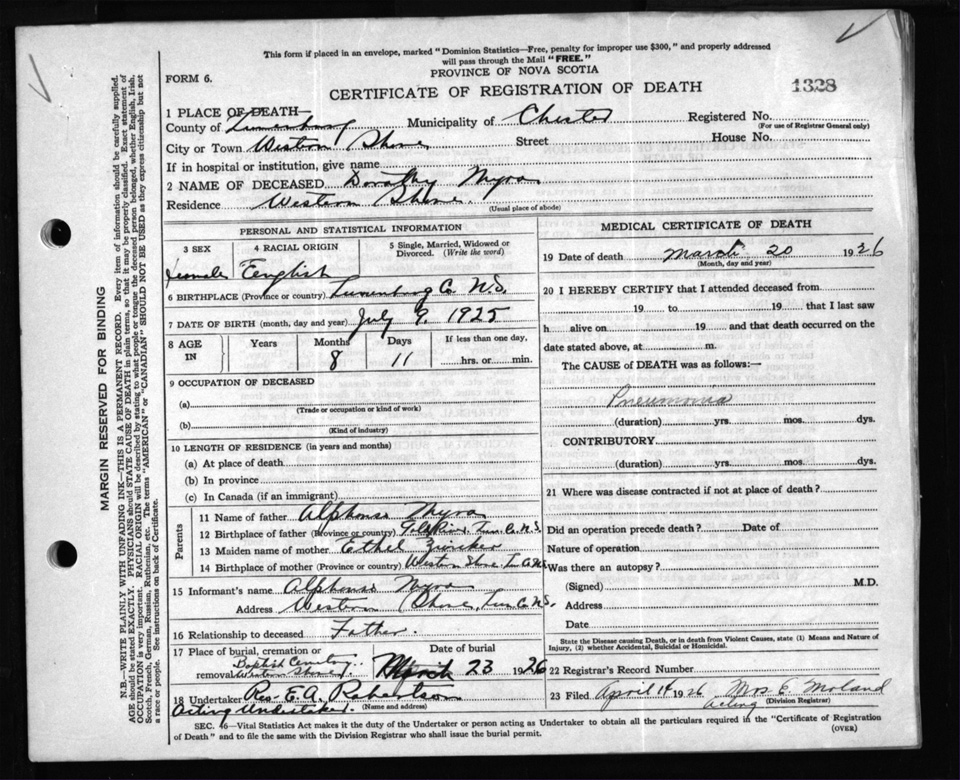 This form if placed in an envelope, marked "Dominion Statistics—Free, penalty for improper use $300," and properly addressed
will pass through the Mail "FREE."
PROVINCE OF NOVA SCOTIA
FORM 6.
CERTIFICATE OF REGISTRATION OF DEATH
1328
1 PLACE OF DEATH
County of Lunenburg Municipality of Chester Registered No.
(For use of Registrar General only)
City or Town Western Shore Street House No.
If in hospital or institution, give name
2 NAME OF DECEASED Dorothy Myra
Residence Western Shore
(Usual place of abode)
PERSONAL AND STATISTICAL INFORMATION
3 SEX 4 RACIAL ORIGIN 5 Single, Married, Widowed or Divorced. (Write the word)
Female English
6 BIRTHPLACE (Province or country) Lunenburg Co. N.S.
7 DATE OF BIRTH (month, day and year) July 9, 1925
8 AGE IN Years Months Days If less than one day,
8 11 hrs. or min.
9 OCCUPATION OF DECEASED
(a)
(Trade or occupation or kind of work)
(b)
(Kind of industry)
10 LENGTH OF RESIDENCE (in years and months)
(a) At place of death
(b) In province
(c) In Canada (if an immigrant)
Parents
11 Name of father Alphonse Myra
12 Birthplace of father (Province or country) Lun. Co. N.S.
13 Maiden name of mother Ethel Zinicker
14 Birthplace of mother (Province or country) Western Shore, Lun. Co. N.S.
15 Informant's name Alphonse Myra
Address Western Shore, Lun. Co. N.S.
16 Relationship to deceased Father.
17 Place of burial, cremation or removal Date of burial
Baptist Cemetery
Western Shore March 23 1926
18 Undertaker Rev. E. A. Robertson
Acting Undertaker. (Name and address)
MEDICAL CERTIFICATE OF DEATH
19 Date of death March 20 1926
(Month, day and year)
20 I HEREBY CERTIFY that I attended deceased from
19 to 19 that I last saw
h alive on 19 and that death occurred on the
date stated above, at m.
The CAUSE of DEATH was as follows:—
Pneumonia
(duration) yrs. mos. dys.
CONTRIBUTORY
(duration) yrs. mos. dys.
21 Where was disease contracted if not at place of death?
Did an operation precede death? Date of
Nature of operation
Was there an autopsy?
(Signed) M.D.
Address
Date
State the Disease causing Death, or in death from Violent Causes, state (1) Means and Nature of
Injury, (2) whether Accidental, Suicidal or Homicidal.
22 Registrar's Record Number
23 Filed April 14 1926 Mrs E Moland
acting (Division Registrar)
SEC. 6—Vital Statistics Act makes it the duty of the Undertaker or person acting as Undertaker to obtain all the particulars required in the "Certificate of Registration
of Death" and to file the same with the Division Registrar who shall issue the burial permit.
(OVER)
MARGIN RESERVED FOR BINDING
N.B.—WRITE PLAINLY WITH UNFADING INK—THIS IS A PERMANENT RECORD. Every item of information should be carefully supplied.
AGE should be stated EXACTLY. PHYSICIANS should STATE CAUSE OF DEATH in plain terms, so that it may be properly classified. Exact statement of
OCCUPATION is very important. RACIAL ORIGIN will be described by stating to what people or tongue the deceased person belonged, whether English, Irish,
Scotch, French, German, Russian, Ruthenian, etc. The terms "AMERICAN" or "CANADIAN" SHOULD NOT BE USED as they express citizenship but not
a race or people. See instructions on back of Certificate.